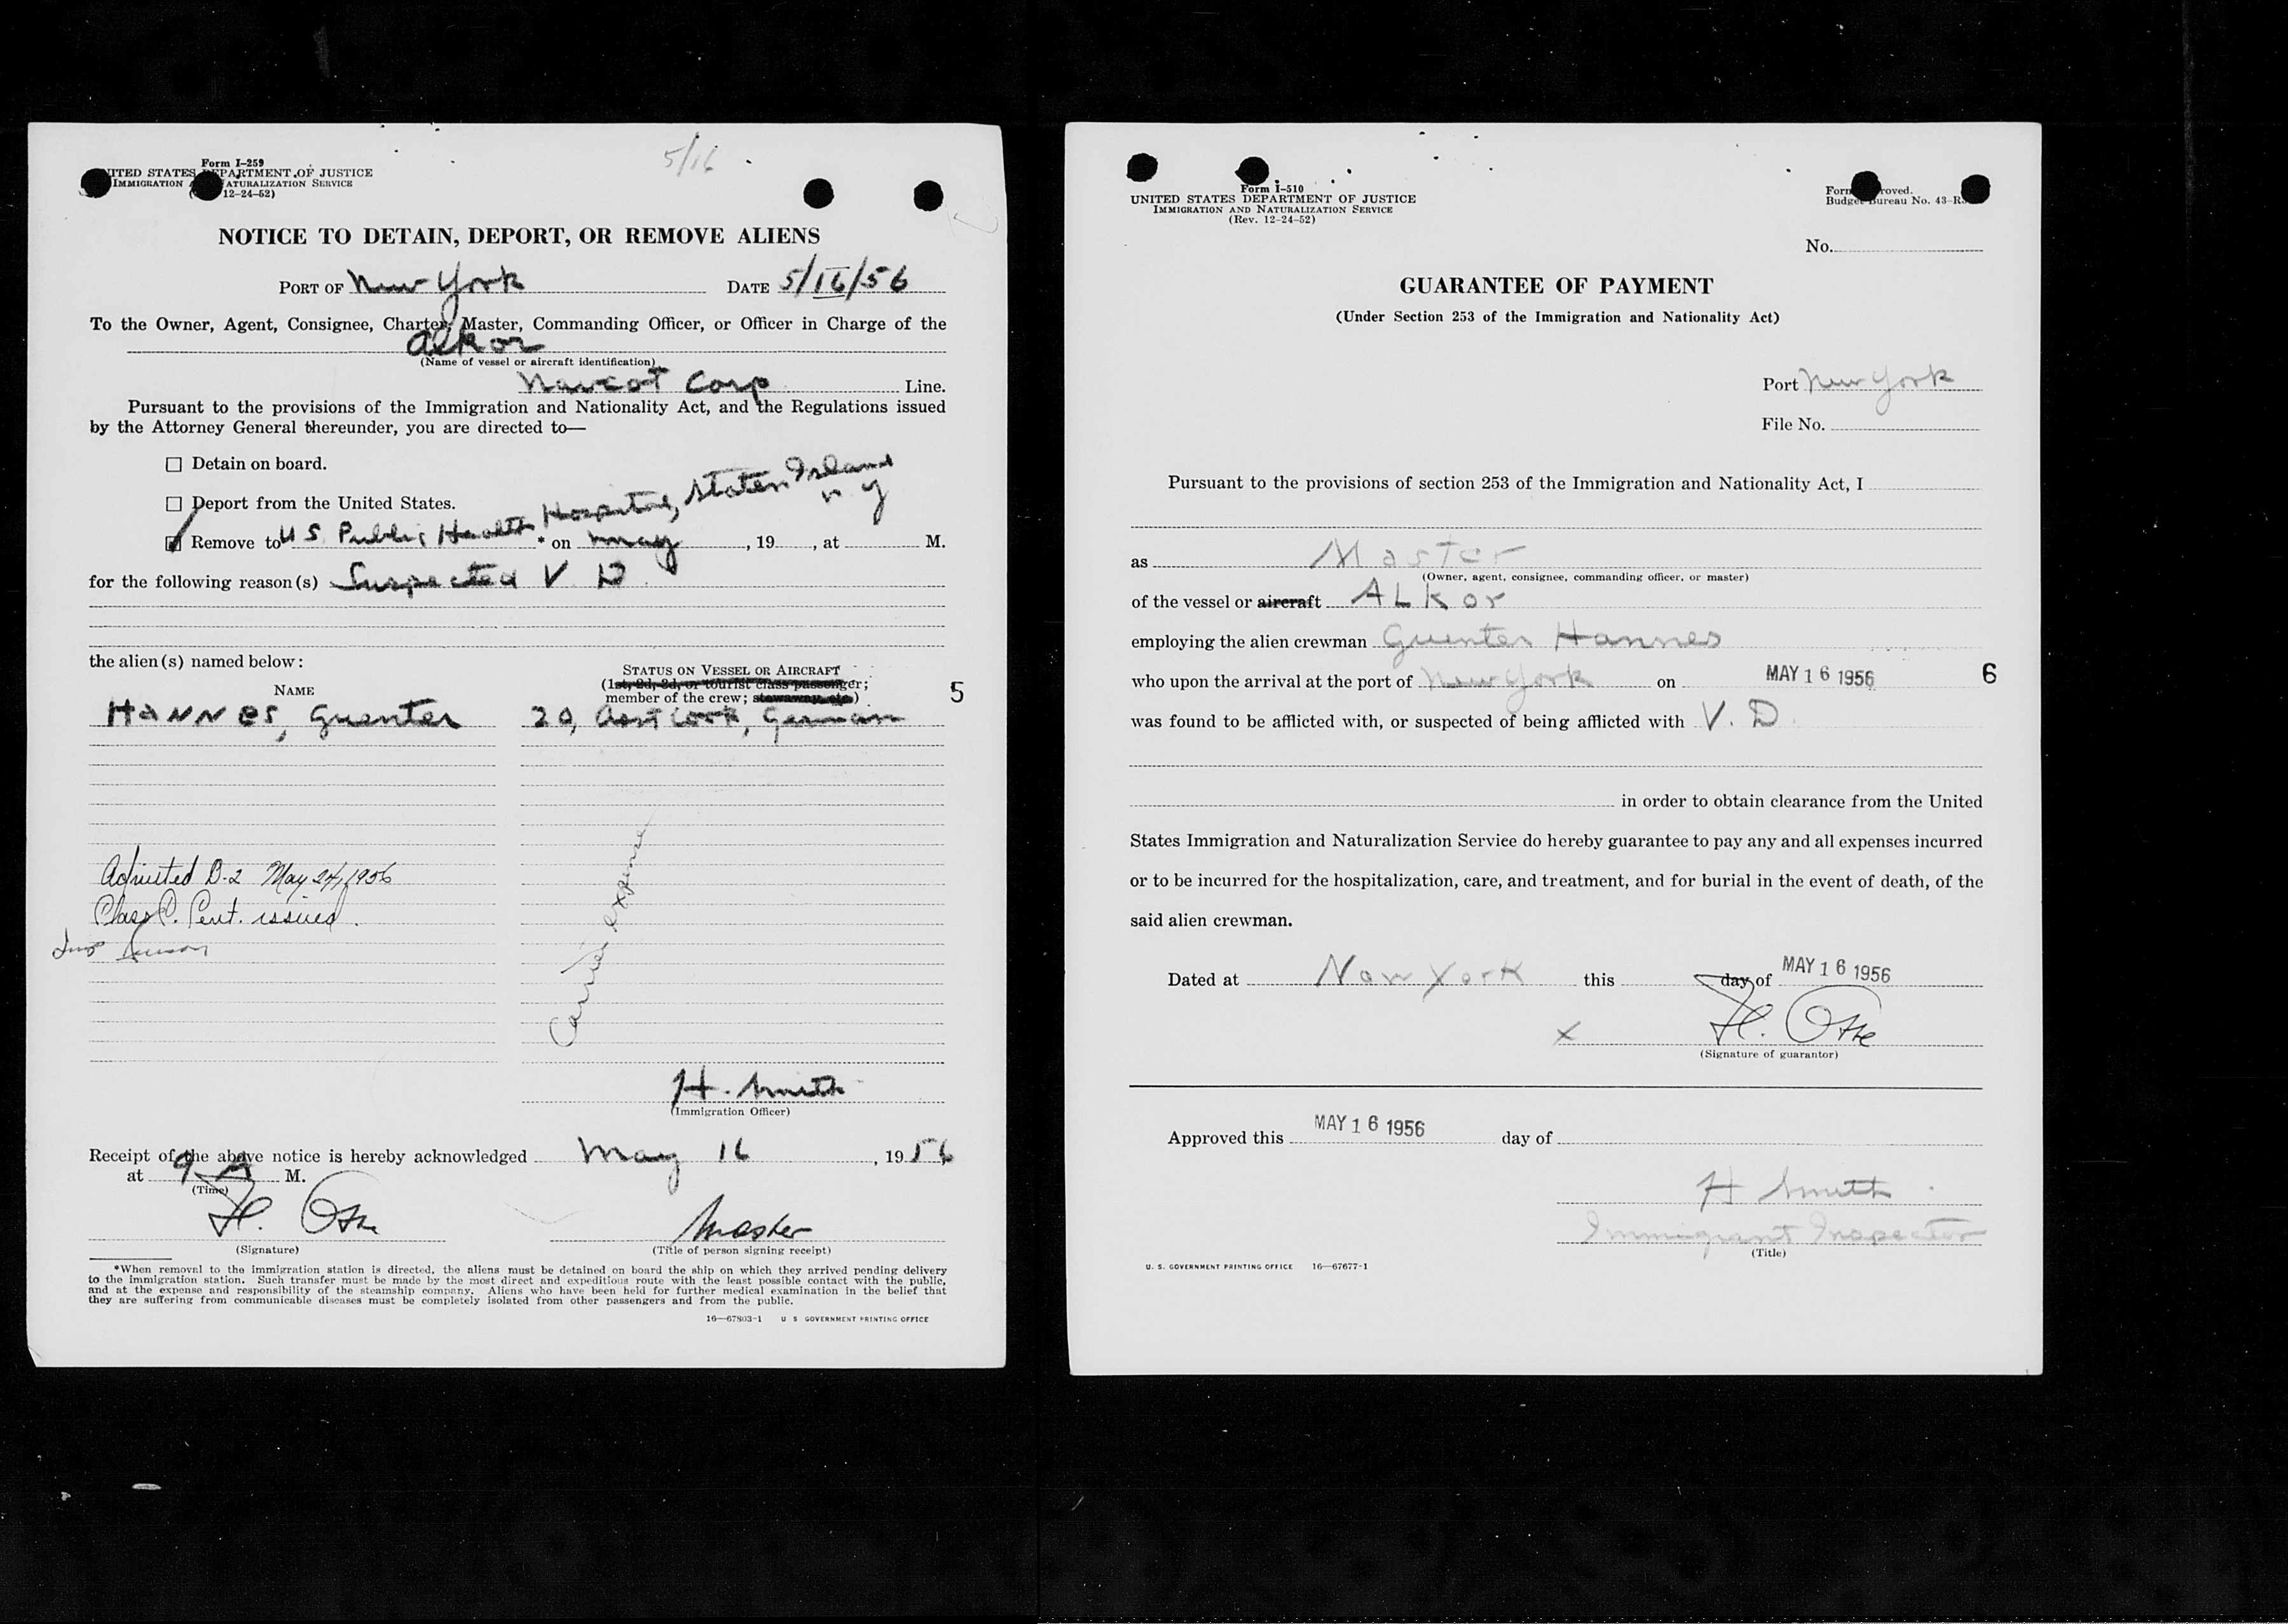 5/16
Form I-259
ITED STATES EPARTMENT OF JUSTICE
IMMIGRATION ATURALIZATION SERVICE
12-24-52)
NOTICE TO DETAIN, DEPORT, OR REMOVE ALIENS
PORT OF New York DATE 5/16/56
To the Owner, Agent, Consignee, Charter, Master, Commanding Officer, or Officer in Charge of the
Alkor
(Name of vessel or aircraft identification)
Navcot Corp Line.
Pursuant to the provisions of the Immigration and Nationality Act, and the Regulations issued
by the Attorney General thereunder, you are directed to—
☐ Detain on board.
☐ Deport from the United States.
Remove to U S Public Health Hospital, Staten Island N Y * on May , 19 , at M.
for the following reason(s) Suspected V D
the alien(s) named below:
NAME
STATUS ON VESSEL OR AIRCRAFT
(1st, 2d, 3d, or tourist class passenger;
member of the crew; stowaway, etc)
5
HANNES, Guenter 20, Asst Cook, German
Adjusted D-2 May 24, 1956
Class C. Cert. issued.
Carrier expense
H. Smith
(Immigration Officer)
Receipt of the above notice is hereby acknowledged May 16, 1956
at 9 A M.
(Time)
Master
(Signature) (Title of person signing receipt)
*When removal to the immigration station is directed, the aliens must be detained on board the ship on which they arrived pending delivery
to the immigration station. Such transfer must be made by the most direct and expeditious route with the least possible contact with the public,
and at the expense and responsibility of the steamship company. Aliens who have been held for further medical examination in the belief that
they are suffering from communicable diseases must be completely isolated from other passengers and from the public.
16—67803-1 U S GOVERNMENT PRINTING OFFICE
Form I-510
UNITED STATES DEPARTMENT OF JUSTICE
IMMIGRATION AND NATURALIZATION SERVICE
(Rev. 12-24-52)
Form roved.
Budget Bureau No. 43-R
No.
GUARANTEE OF PAYMENT
(Under Section 253 of the Immigration and Nationality Act)
Port New York
File No.
Pursuant to the provisions of section 253 of the Immigration and Nationality Act, I
as Master
(Owner, agent, consignee, commanding officer, or master)
of the vessel or aircraft ALKor
employing the alien crewman Guenter Hannes
who upon the arrival at the port of New York on MAY 16 1956 6
was found to be afflicted with, or suspected of being afflicted with V. D
in order to obtain clearance from the United
States Immigration and Naturalization Service do hereby guarantee to pay any and all expenses incurred
or to be incurred for the hospitalization, care, and treatment, and for burial in the event of death, of the
said alien crewman.
Dated at New York this day of MAY 16 1956
X
(Signature of guarantor)
Approved this MAY 16 1956 day of
H Smith
Immigrant Inspector
(Title)
U. S. GOVERNMENT PRINTING OFFICE 16—67677-1